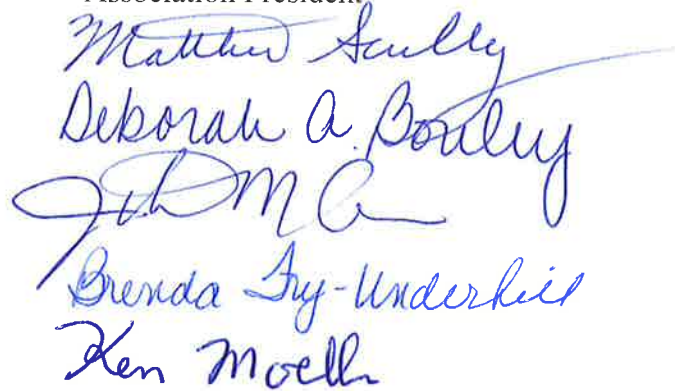 Association President
Matthew Scully
Deborah A. Bouley
Brenda Fry-Underhill
Ken